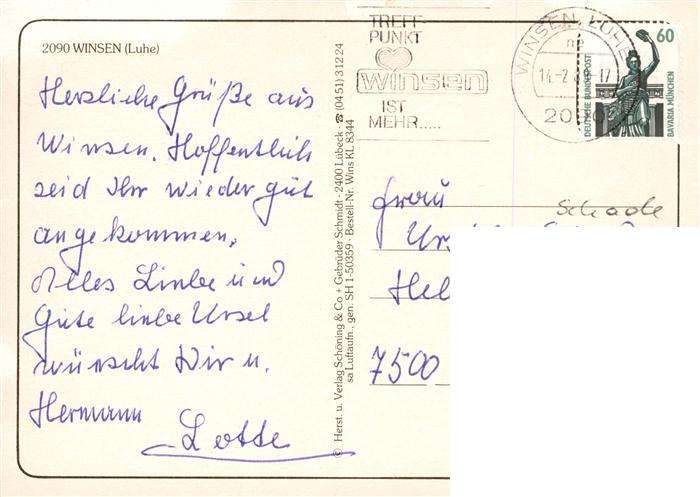 2090 WINSEN (Luhe)
Herzliche Grüße aus
Winsen. Hoffentlich
seid Ihr wieder gut
angekommen,
Alles Liebe und
Gute liebe Ursel
wünscht Dir u.
Hermann
Lotte
© Herst. u. Verlag Schöning & Co + Gebrüder Schmidt · 2400 Lübeck · ☎ (04 51) 3 12 24
sa Luftaufn., gen: SH 1-50359 · Bestell-Nr. Wins KL 8344
TREFF-
PUNKT
winsen
IST
MEHR.....
WINSEN, LUHE
14.-2
17
20
60
DEUTSCHE BUNDESPOST
BAVARIA MÜNCHEN
Frau
Schade
Hel
7500